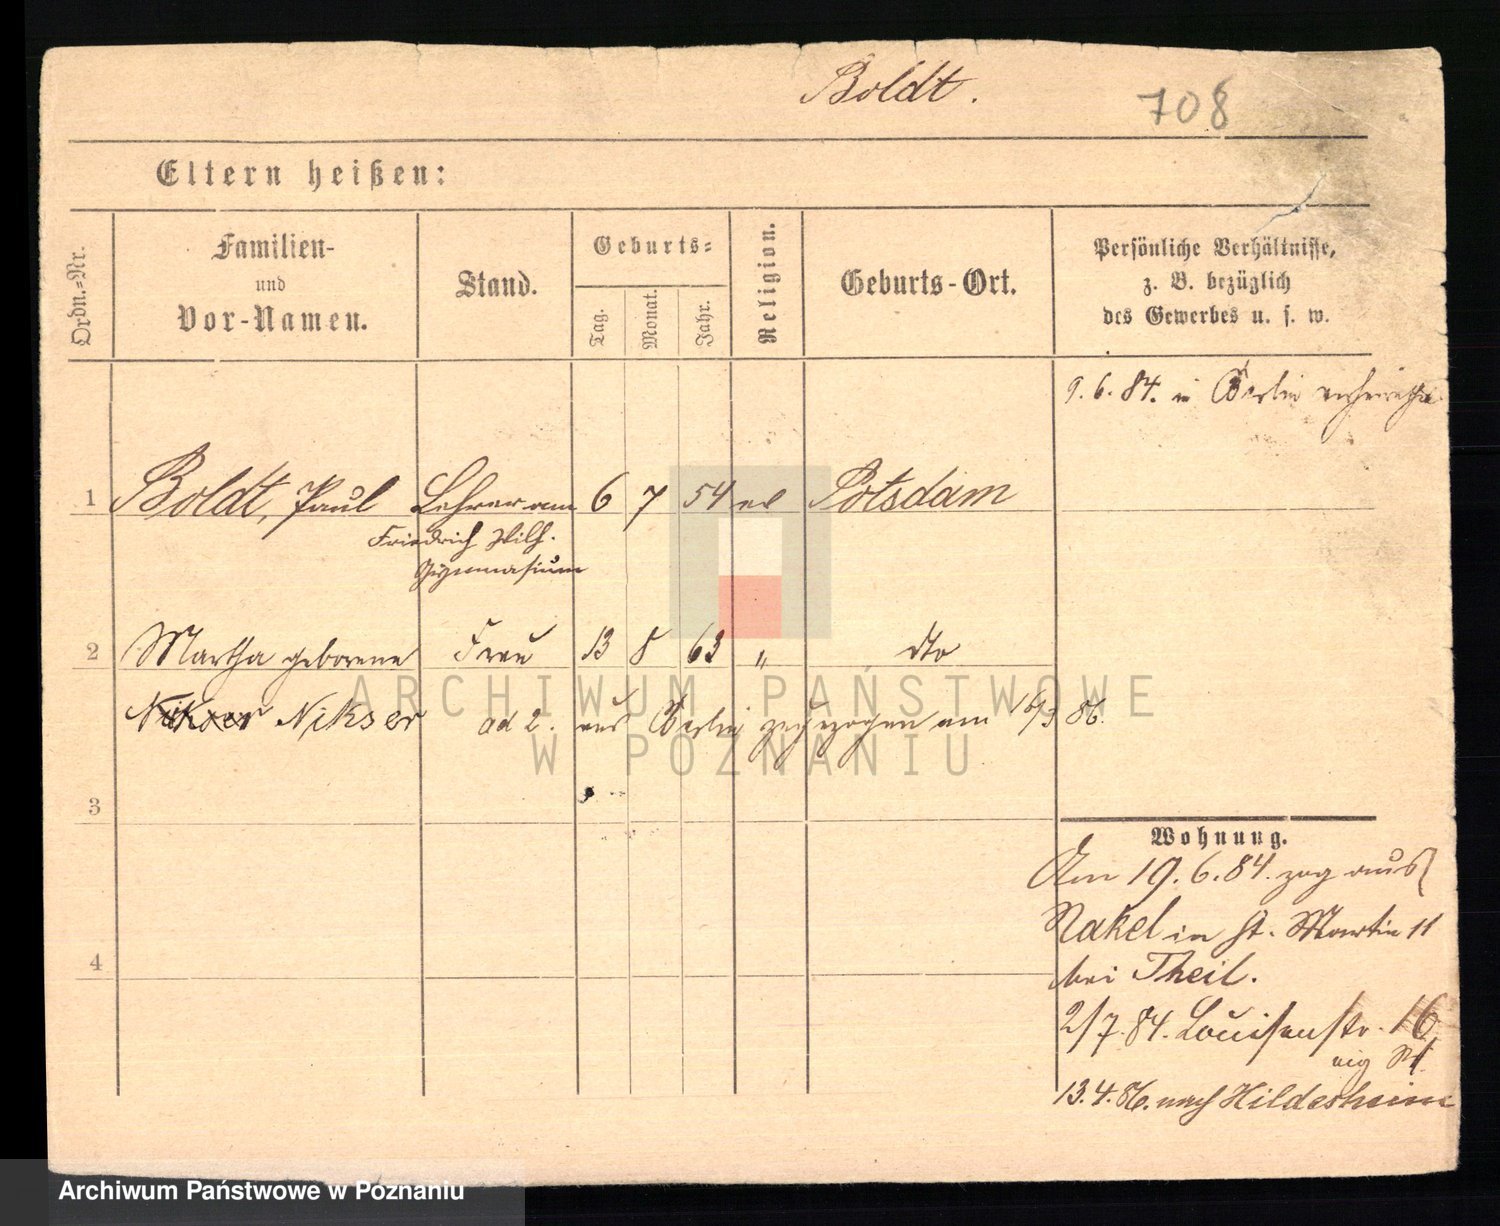 Boldt.
708
Eltern heißen:
Ordn.=Nr.
Familien-
und
Vor-Namen.
Stand.
Geburts=
Tag.
Monat.
Jahr.
Religion.
Geburts-Ort.
Persönliche Verhältnisse,
z. B. bezüglich
des Gewerbes u. s. w.
9. 6. 84. in Berlin verheirathe
1 Boldt, Paul Lehrer am 6 7 54 ev Potsdam
Friedrich Wilh.
Gymnasium
2 Martha geborene Frau 13 8 63 " dto
Nikser ad 2. aus Berlin zugezogen am 16/3 86.
3
Wohnung.
Am 19. 6. 84. zog aus
Nakel in St. Martin 11
bei Theil.
4
2/7. 84. Louisenstr. 16
13. 4. 86. nach Hildesheim
ARCHIWUM PAŃSTWOWE
W POZNANIU
Archiwum Państwowe w Poznaniu